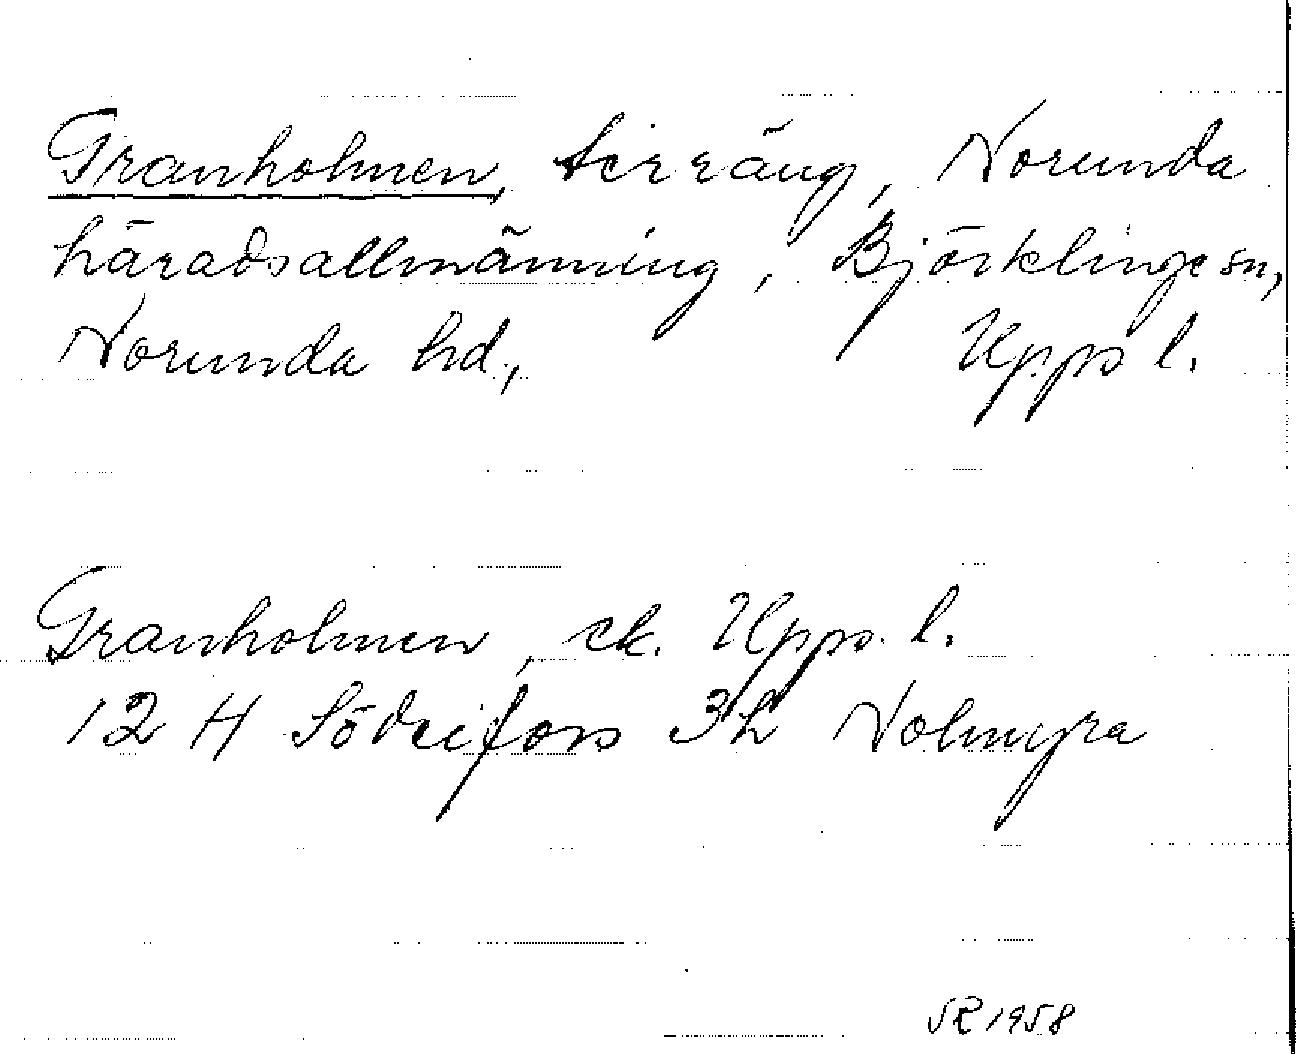 Granholmen, terräng, Norunda
häradsallmänning, Björklinge sn,
Norunda hd, Upps l.
Granholmen, ek. Upps. l.
12 H Söderfors 3h Nolmyra
SR 1958